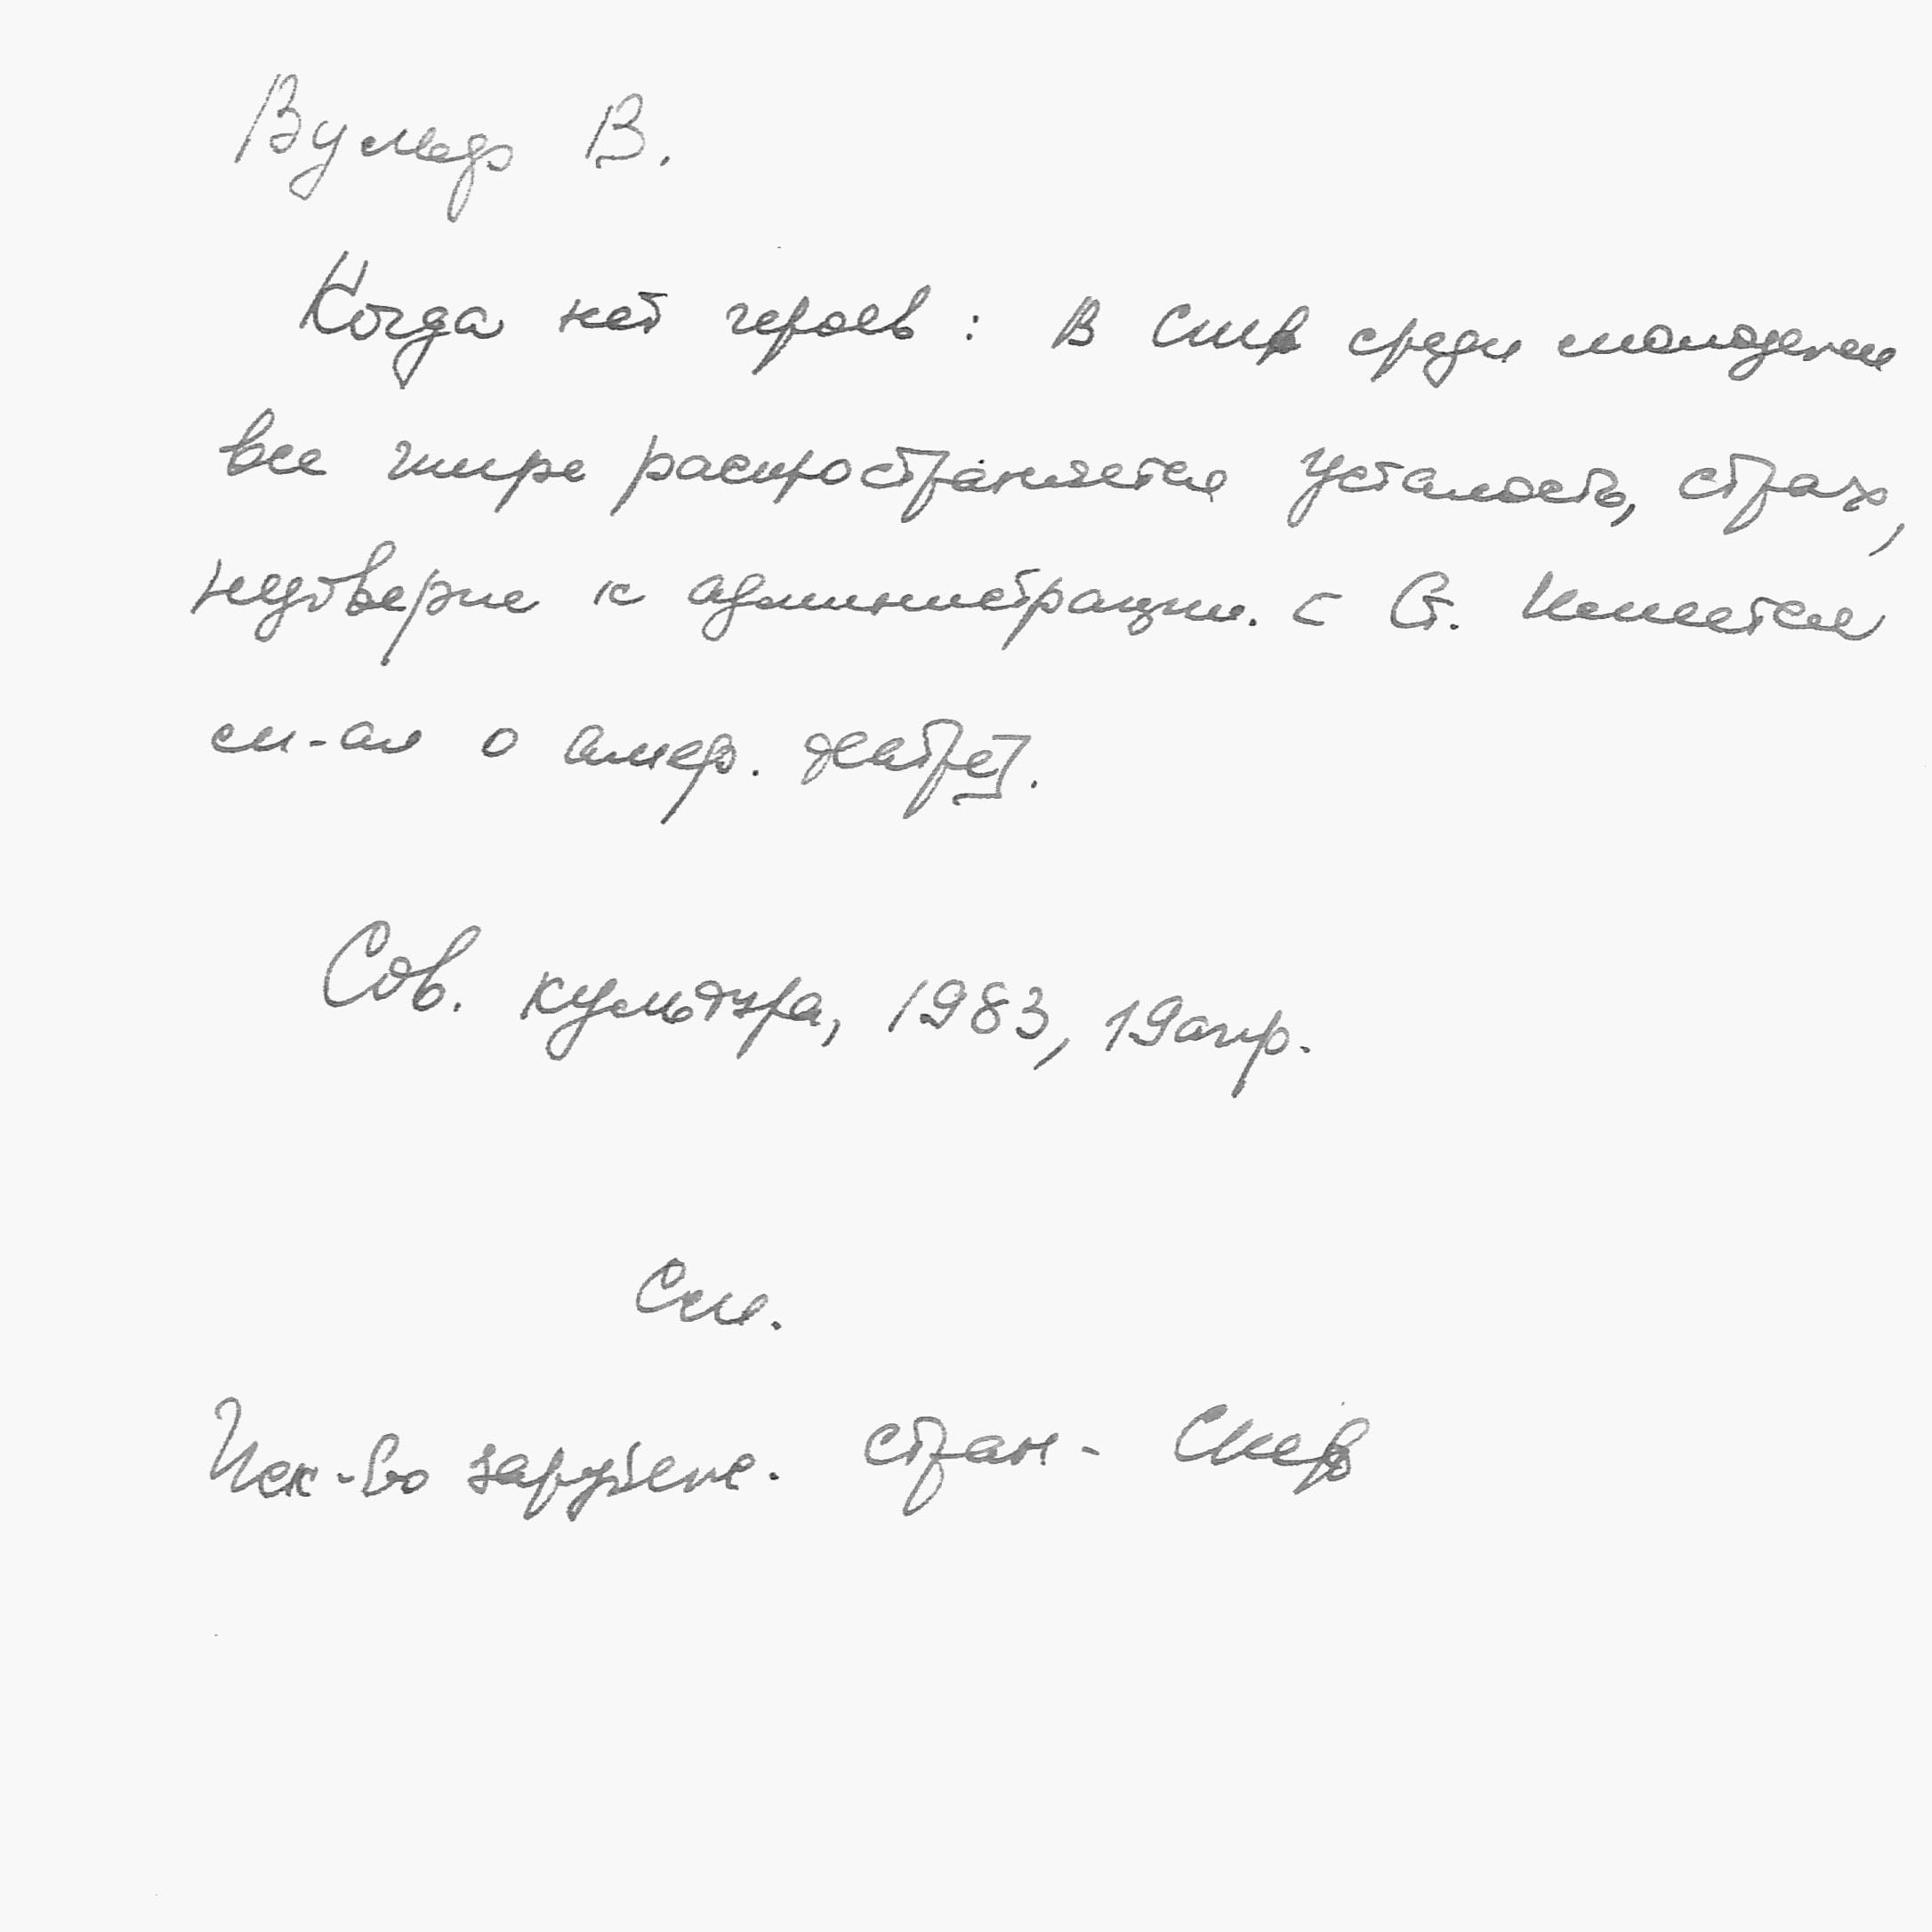 Вульф В.
Когда нет героев : В США среди молодежи
все шире распространяется усталость, страх,
недоверие к администрации. Ст. Имеется
м-ал о амер. театре].
Сов. культура, 1983, 19 апр.
См.
Иск-во зарубежн. стран - США